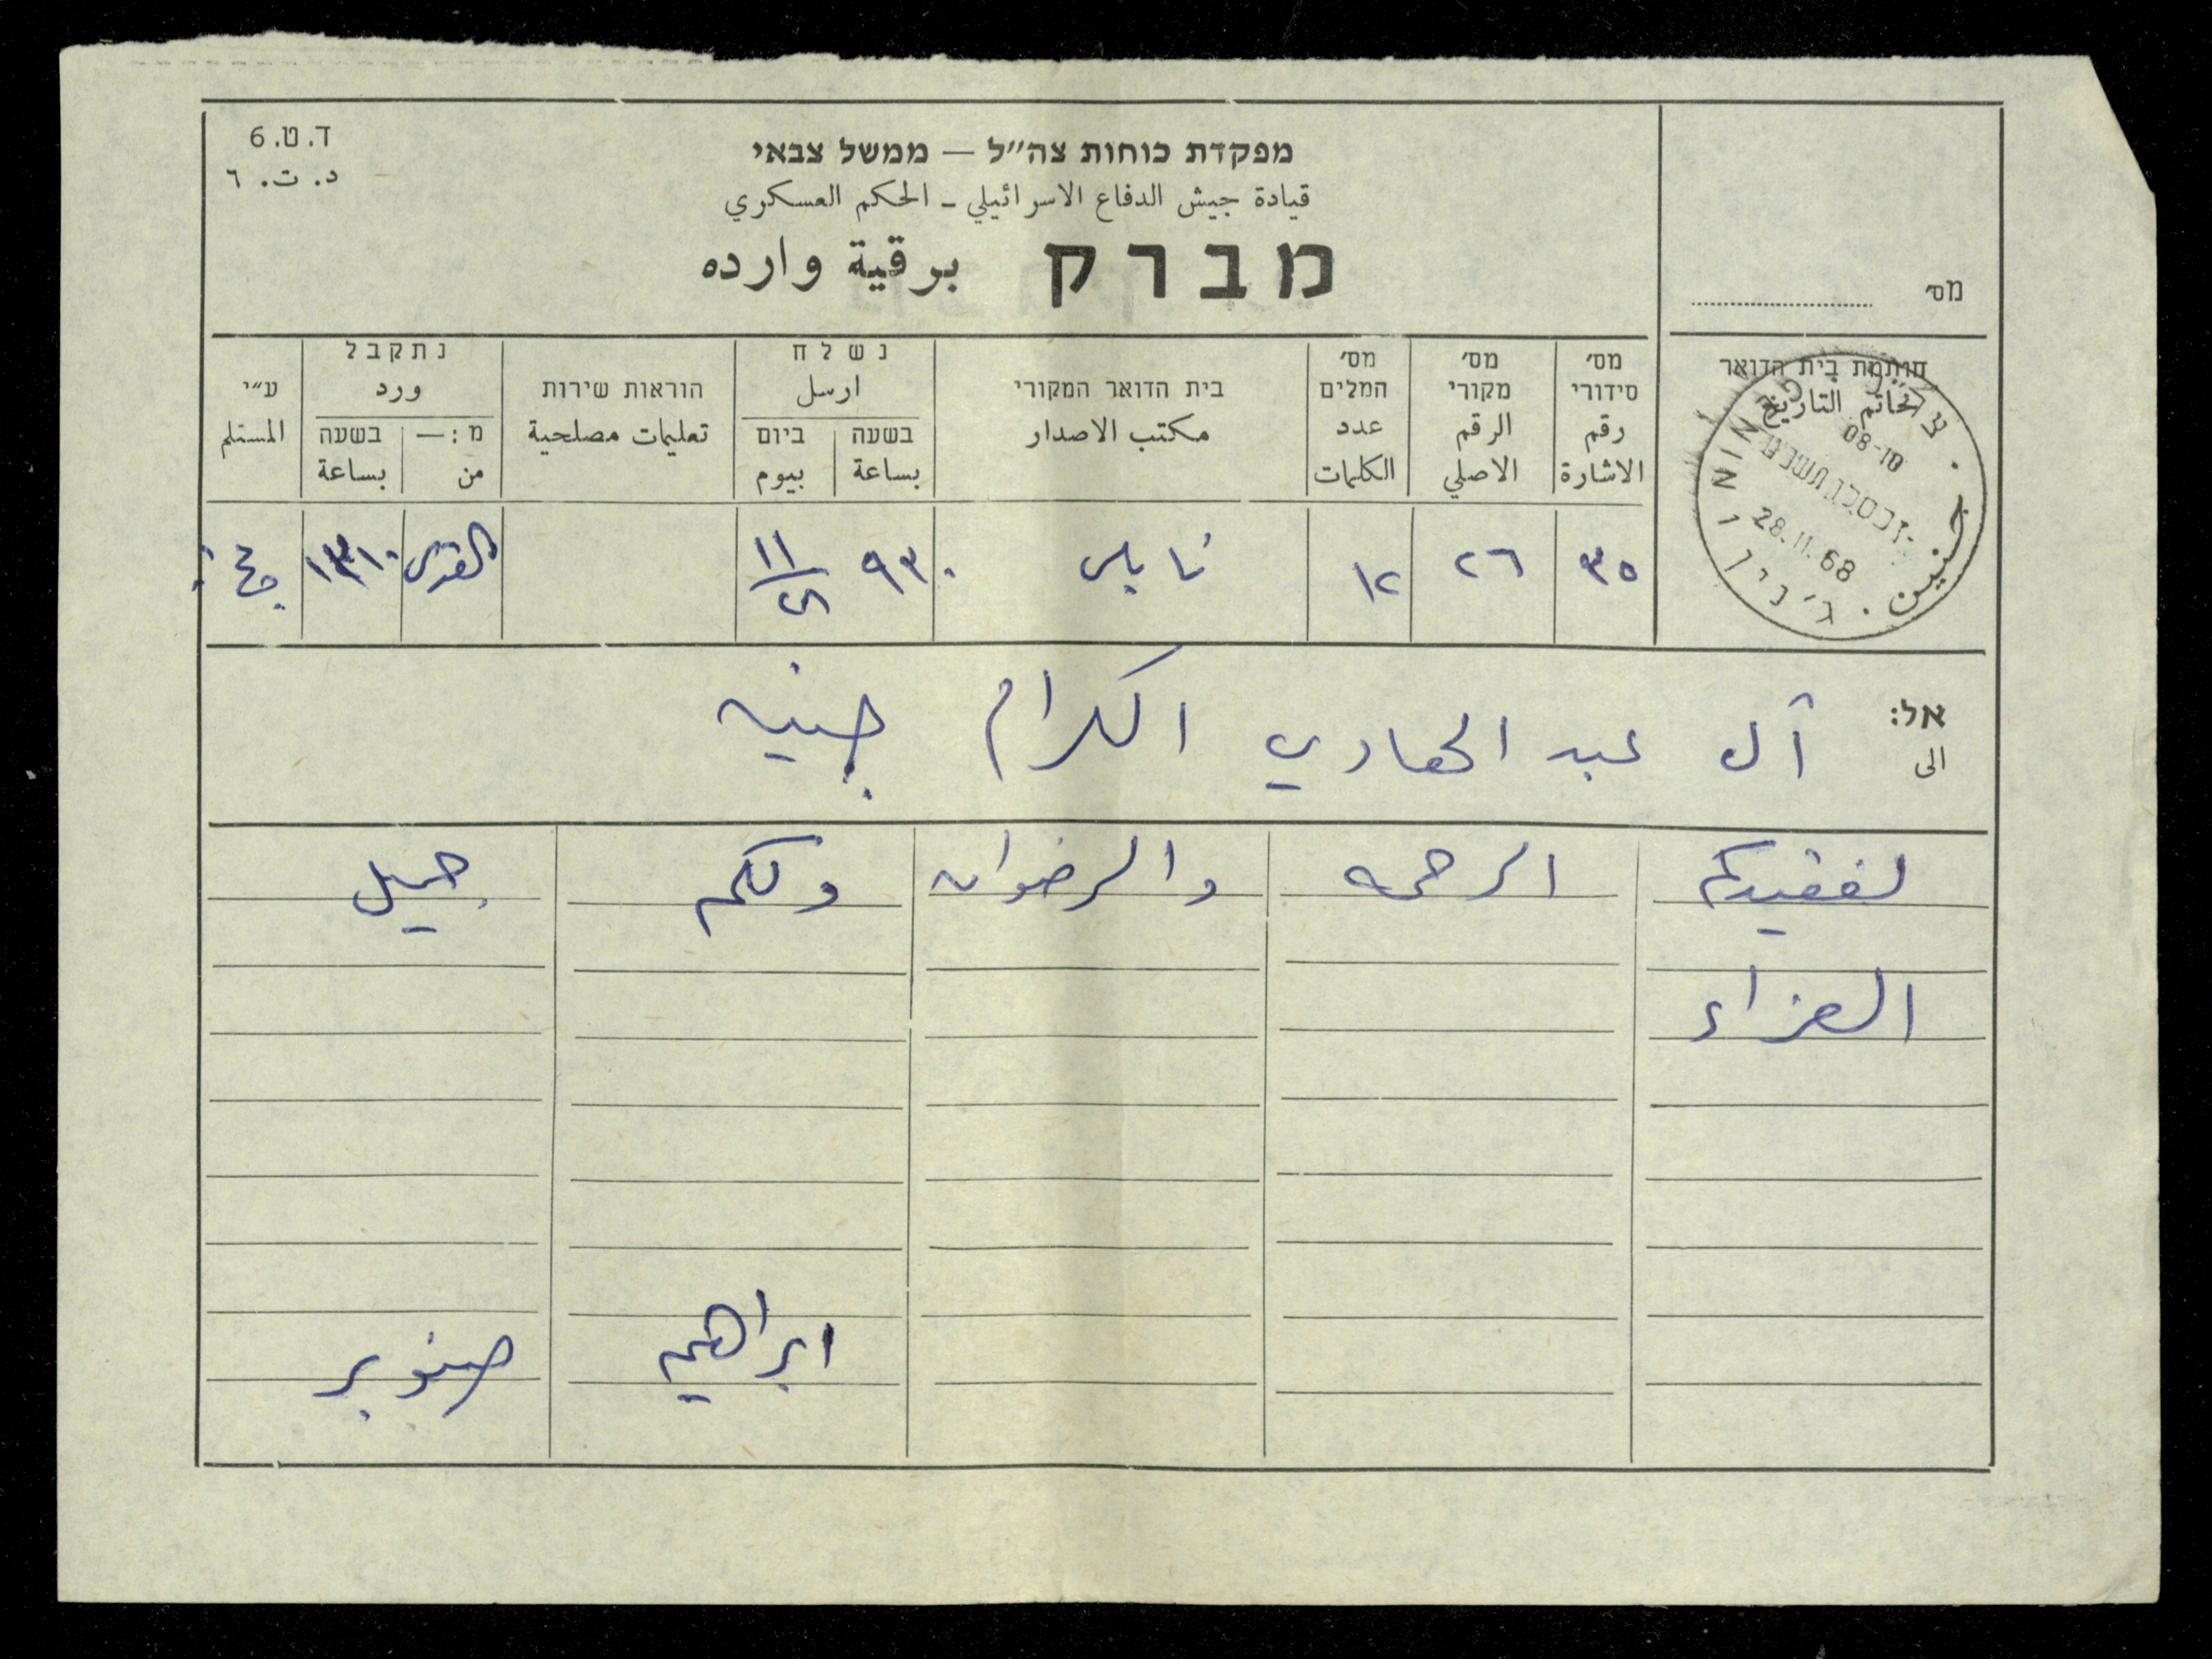 ד.ט.6
د. ت. ٦
מפקדת כוחות צה״ל — ממשל צבאי
قيادة جيش الدفاع الاسرائيلي - الحكم العسكري
מברק برقية وارده
מס׳
חותמת בית הדואר
الخاتم التاريخ
JENIN
08-10
28.11.68
ג׳נין
جنين
מס׳ סידורי
رقم الاشارة
מס׳ מקורי
الرقم الاصلي
מס׳ המלים
عدد الكلمات
בית הדואר המקורי
مكتب الاصدار
נשלח
ارسل
בשעה
بساعة
ביום
بيوم
הוראות שירות
تعليمات مصلحية
נתקבל
ورد
מ:—
من
בשעה
بساعة
ע״י
المستلم
٣٥ ٢٦ ١٢ نابلس ٩٣٠ القدس
אל:
الى
آل عبد الهادي الكرام جنين
لفقيدكم الرحمه والرضوان ولكم جميل
العزاء
ابراهيم صنوبر